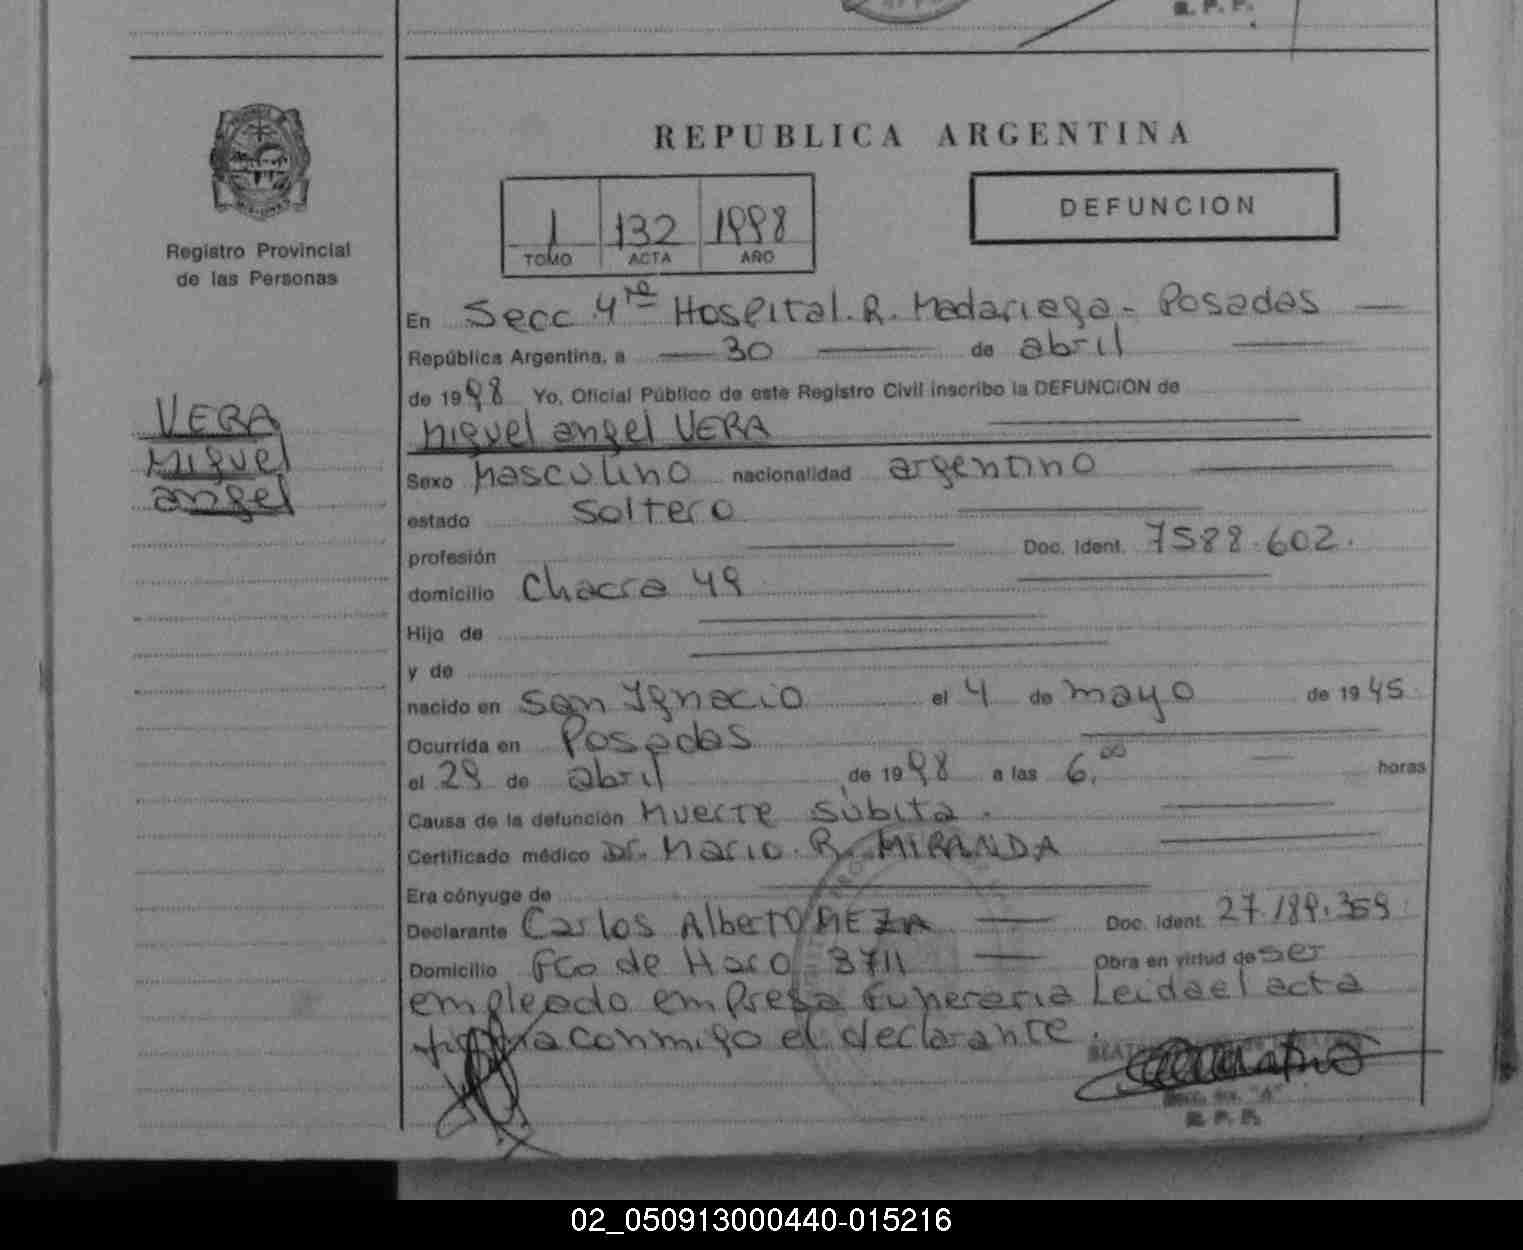 R. P. P.
REPUBLICA ARGENTINA
Registro Provincial
de las Personas
1 132 1998
TOMO ACTA AÑO
DEFUNCION
En Secc 4ta Hospital. R. Madariaga - Posadas
República Argentina, a 30 de abril
de 1998 Yo, Oficial Público de este Registro Civil inscribo la DEFUNCION de
VERA
Miguel
angel
Miguel angel VERA
Sexo Masculino nacionalidad argentino
estado Soltero
profesión Doc. Ident. 7588.602.
domicilio Chacra 49
Hijo de
y de
nacido en San Ignacio el 4 de mayo de 1945
Ocurrida en Posadas
el 29 de abril de 1998 a las 6.00 horas
Causa de la defunción Muerte súbita.
Certificado médico Dr. Mario. R. MIRANDA
Era cónyuge de
Declarante Carlos Alberto MEZA Doc. Ident. 27.189.359
Domicilio Fco de Haro 3711 Obra en virtud de ser
empleado empresa Funeraria Leida el acta
firma conmigo el declarante.
R. P. P.
02_050913000440-015216